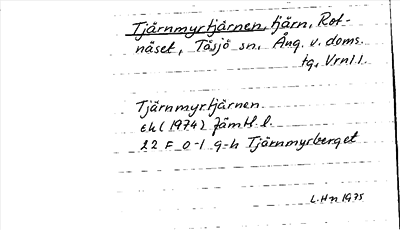 Tjärnmyrtjärnen, tjärn, Rot-
näset, Tåsjö sn, Ång. v. doms.
tg, Vrnl l.
Tjärnmyrtjärnen.
Ek (1974) Jämtl. l.
22 F 0-1 g-h Tjärnmyrberget
L. Hn 1975